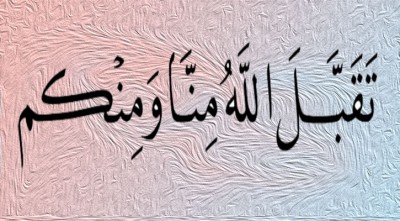 تَقَبَّلَ اللَّهُ مِنَّا وَمِنْكُم